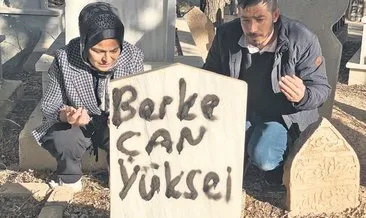 Berke
ÇAN
Yüksel